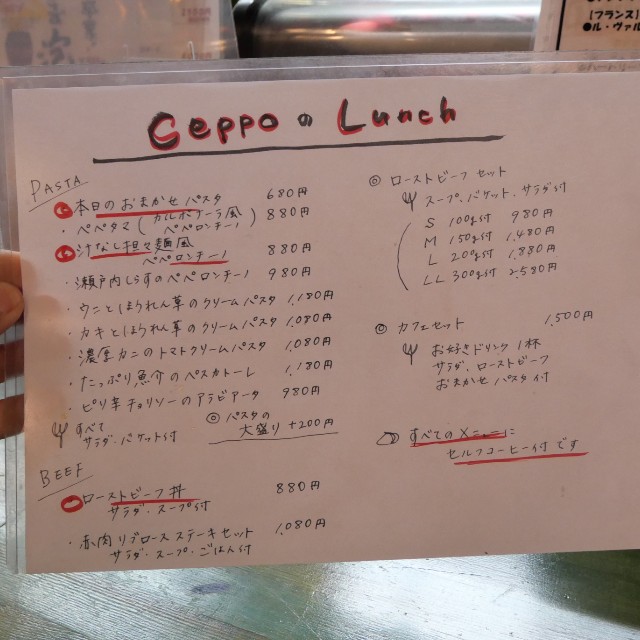 Geppo の Lunch
PASTA
本日のおまかせパスタ 680円
・ペペタマ (カルボナーラ風 ペペロンチーノ) 880円
汁なし担々麺風
ペペロンチーノ 880円
・瀬戸内しらすのペペロンチーノ 980円
・ウニとほうれん草のクリームパスタ 1,180円
・カキとほうれん草のクリームパスタ 1,080円
・濃厚カニのトマトクリームパスタ 1,080円
・たっぷり魚介のペスカトーレ 1,180円
・ピリ辛チョリソーのアラビアータ 980円
すべて
サラダ・バケット付
◎ パスタの
大盛り +200円
BEEF
ローストビーフ丼 880円
サラダ・スープ付
・赤肉リブロースステーキセット 1,080円
サラダ・スープ・ごはん付
◎ ローストビーフ セット
スープ・バケット・サラダ付
S 100g付 980円
M 150g付 1,480円
L 200g付 1,880円
LL 300g付 2,580円
◎ カフェセット 1,500円
お好きドリンク 1杯
サラダ・ローストビーフ
おまかせパスタ付
すべてのメニューに
セルフコーヒー付です
[フランス]
●ル・ヴァル